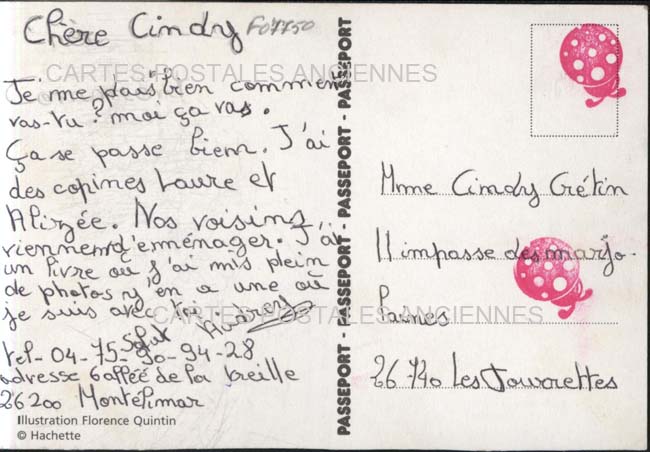 Chère Cindy F07750
CARTES POSTALES ANCIENNES
Je me plais bien comment
vas-tu? moi ça vas.
Ça se passe bien. J'ai
des copines Laure et
Alizée. Nos voisins
viennent d'emménager. J'ai
un livre où j'ai mis plein
de photos y'en a une où
je suis avec toi.
Salut Audrey
tel- 04-75-90-94-28
adresse 6 allée de la treille
26200 Montélimar
Illustration Florence Quintin
© Hachette
PASSEPORT - PASSEPORT - PASSEPORT - PASSEPORT - PASSEPORT
Mme Cindy Crétin
11 impasse des marjo-
laines
CARTES POSTALES ANCIENNES
26740 Les Tourrettes